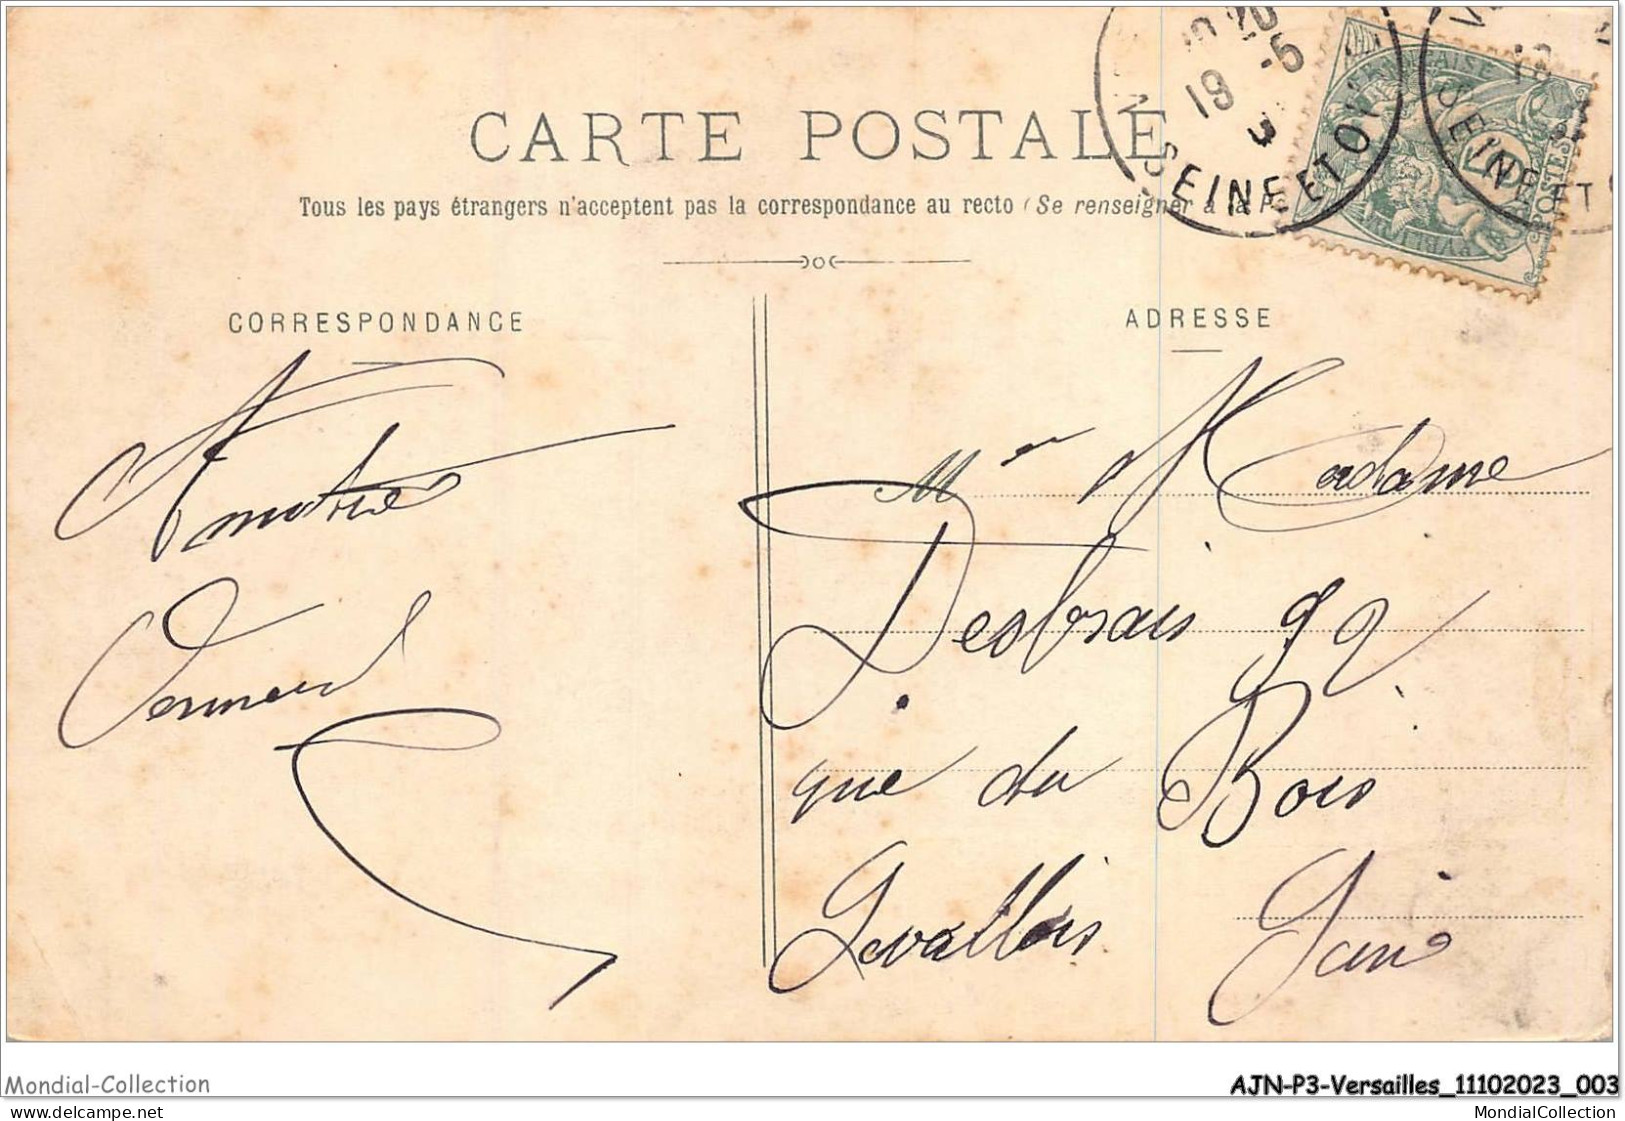 CARTE POSTALE
Tous les pays étrangers n'acceptent pas la correspondance au recto (Se renseigner à la P
CORRESPONDANCE
ADRESSE
M
Madame
Desbrais 92
rue du Bois
Levallois
19 -5
SEINE ET O
SEINE ET
POSTES
Mondial-Collection
AJN-P3-Versailles_11102023_003
MondialCollection
delcampe.net